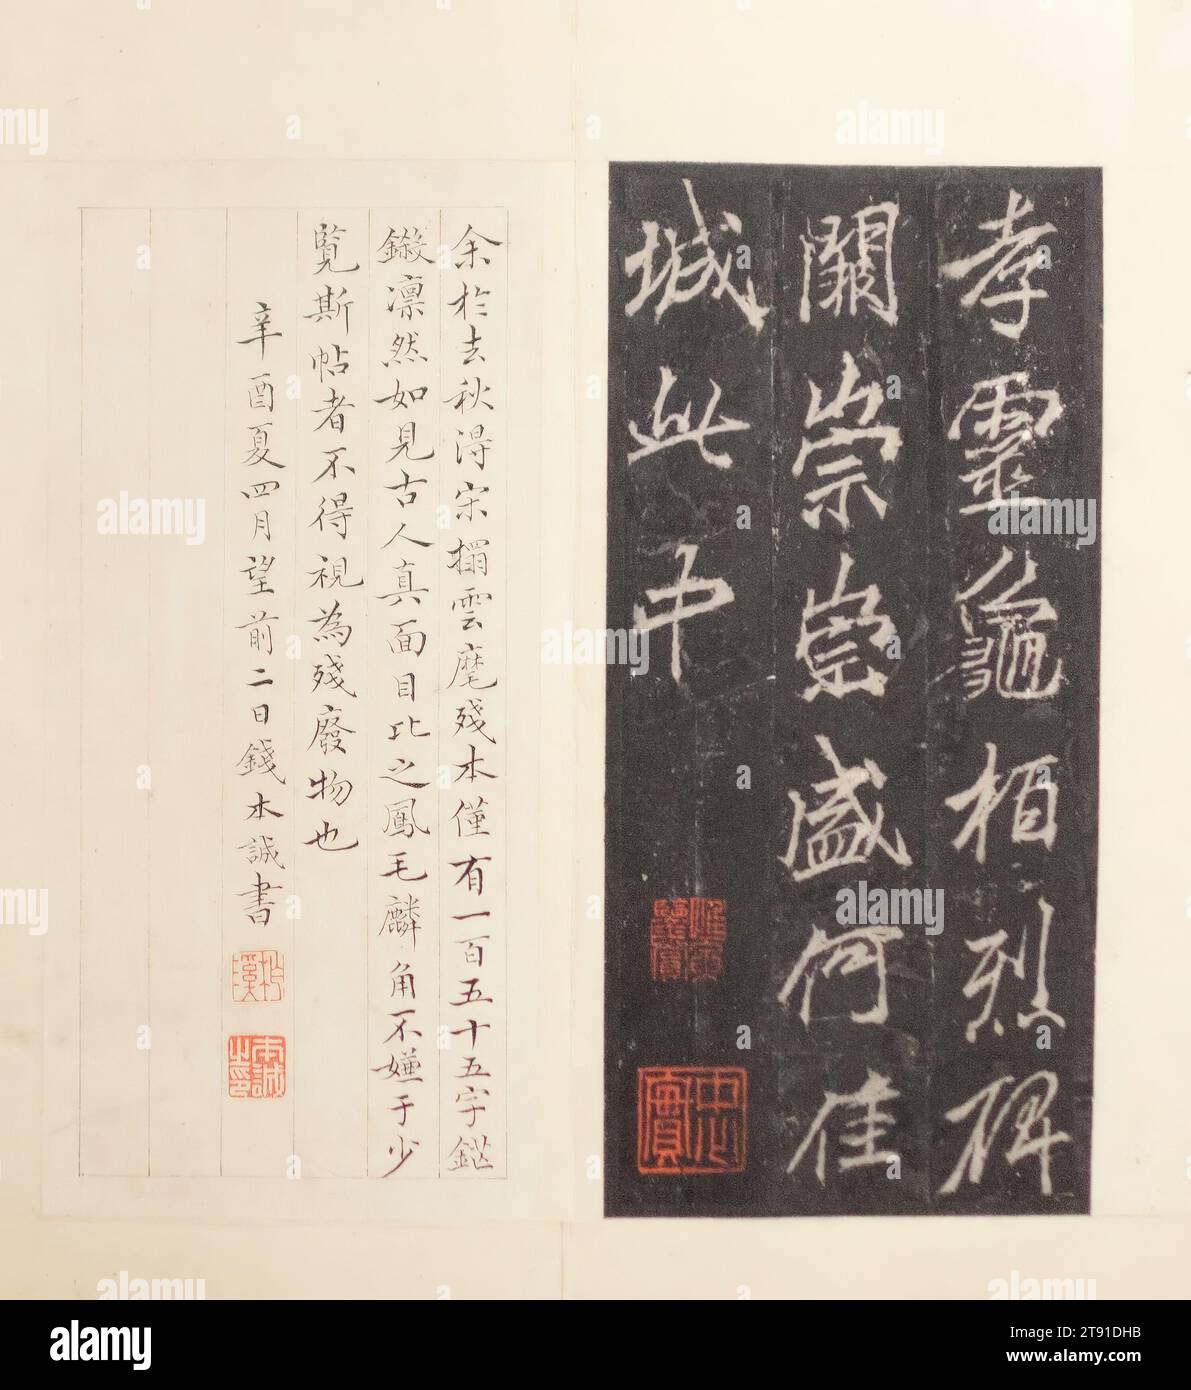 孝靈龜栢烈碑
闕崇崇盛何佳
城此中
余於去秋淂宋搨雲麾殘本僅有一百五十五字鋩
鎩凛然如見古人真面目比之鳳毛麟角不嫌于少
覧斯帖者不得視為殘廢物也
辛酉夏四月望前二日錢本誠書
本誠之印
忠實
alamy
Image ID: 2T91DHB
www.alamy.com